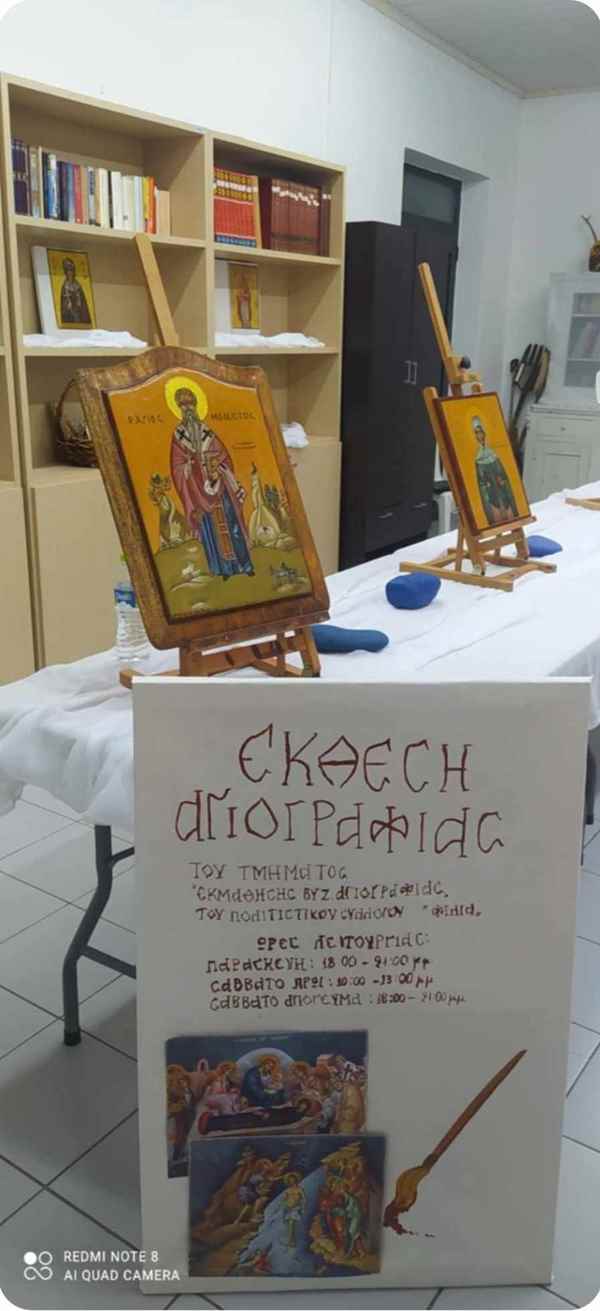 Ο ΑΓΙΟΣ ΜΟΔΕΣΤΟΣ
ΕΚΘΕΣΗ
αΓΙΟΓΡαΦΙαΣ
ΤΟΥ ΤΜΗΜαΤΟΣ
ΕΚΜαΘΗΣΗΣ ΒΥΖ. αΓΙΟΓΡαΦΙαΣ.
ΤΟΥ ΠΟΛΙΤΙΣΤΙΚΟΥ ΣΥΛΛΟΓΟΥ
ΩΡΕΣ ΛΕΙΤΟΥΡΓΙαΣ:
ΠαΡαΣΚΕΥΗ: 18:00 - 21:00 μμ
ΣαΒΒαΤΟ ΠΡΩΙ: 10:00 - 13:00 μμ
ΣαΒΒαΤΟ αΠΟΓΕΥΜα: 18:00 - 21:00 μμ
REDMI NOTE 8
AI QUAD CAMERA